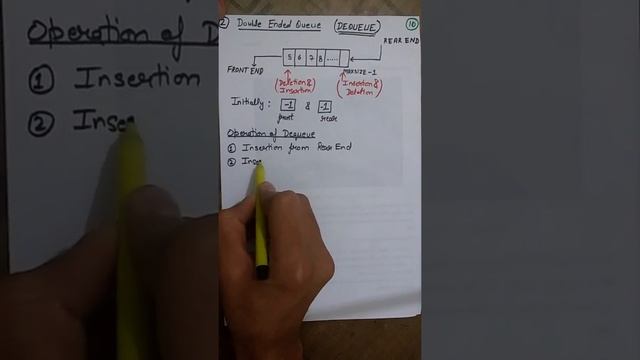 2) Double Ended Queue (DEQUEUE) 10
REAR END
5 6 7 8 .....
FRONT END
MAXSIZE-1
(Deletion & Insertion)
(Insertion & Deletion)
Initially: -1 & -1
front rear
Operation of Dequeue
① Insertion from Rear End
② Inse